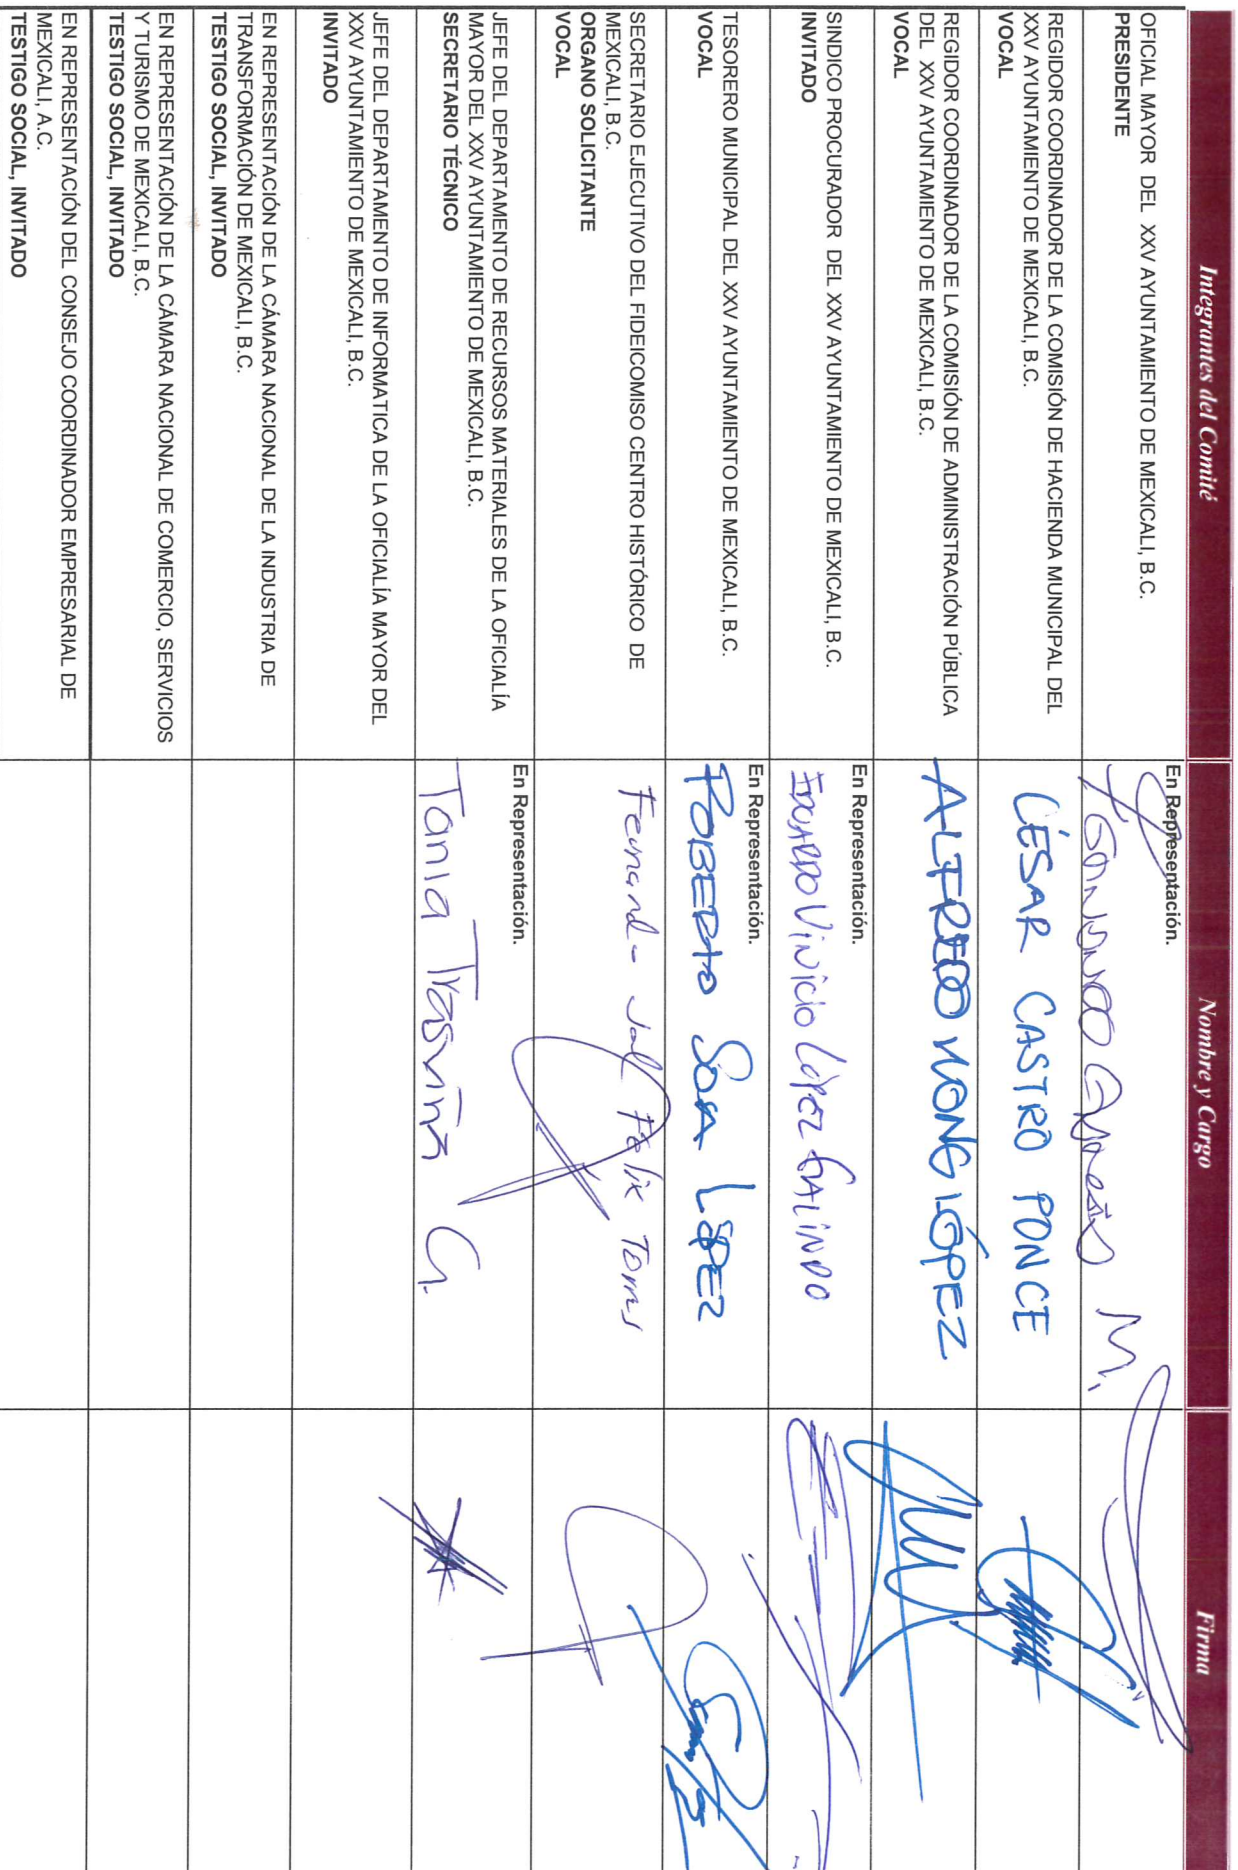 Integrantes del Comité Nombre y Cargo Firma
OFICIAL MAYOR DEL XXV AYUNTAMIENTO DE MEXICALI, B.C.
PRESIDENTE
En Representación.
M.
REGIDOR COORDINADOR DE LA COMISIÓN DE HACIENDA MUNICIPAL DEL
XXV AYUNTAMIENTO DE MEXICALI, B.C.
VOCAL
CÉSAR CASTRO PONCE
REGIDOR COORDINADOR DE LA COMISIÓN DE ADMINISTRACIÓN PÚBLICA
DEL XXV AYUNTAMIENTO DE MEXICALI, B.C.
VOCAL
ALFREDO WONG LÓPEZ
SINDICO PROCURADOR DEL XXV AYUNTAMIENTO DE MEXICALI, B.C.
INVITADO
En Representación.
Vinicio López GALINDO
TESORERO MUNICIPAL DEL XXV AYUNTAMIENTO DE MEXICALI, B.C.
VOCAL
En Representación.
ROBERTO SOSA LÓPEZ
SECRETARIO EJECUTIVO DEL FIDEICOMISO CENTRO HISTÓRICO DE
MEXICALI, B.C.
ORGANO SOLICITANTE
VOCAL
Félix Torres
JEFE DEL DEPARTAMENTO DE RECURSOS MATERIALES DE LA OFICIALÍA
MAYOR DEL XXV AYUNTAMIENTO DE MEXICALI, B.C.
SECRETARIO TÉCNICO
En Representación.
Tania Trasviña G.
JEFE DEL DEPARTAMENTO DE INFORMATICA DE LA OFICIALÍA MAYOR DEL
XXV AYUNTAMIENTO DE MEXICALI, B.C.
INVITADO
EN REPRESENTACIÓN DE LA CÁMARA NACIONAL DE LA INDUSTRIA DE
TRANSFORMACIÓN DE MEXICALI, B.C.
TESTIGO SOCIAL, INVITADO
EN REPRESENTACIÓN DE LA CÁMARA NACIONAL DE COMERCIO, SERVICIOS
Y TURISMO DE MEXICALI, B.C.
TESTIGO SOCIAL, INVITADO
EN REPRESENTACIÓN DEL CONSEJO COORDINADOR EMPRESARIAL DE
MEXICALI, A.C.
TESTIGO SOCIAL, INVITADO